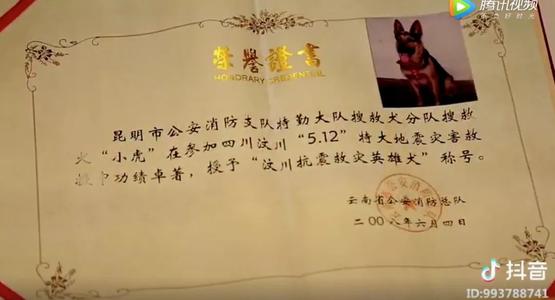 腾讯视频
好时光
榮譽證書
HONORARY CREDENTIAL
昆明市公安消防支队特勤大队搜救犬分队搜救
犬“小虎”在参加四川汶川“5.12”特大地震灾害救
援中功绩卓著，授予“汶川抗震救灾英雄犬”称号。
云南省公安消防总队
二00八年六月四日
抖音
ID:993788741